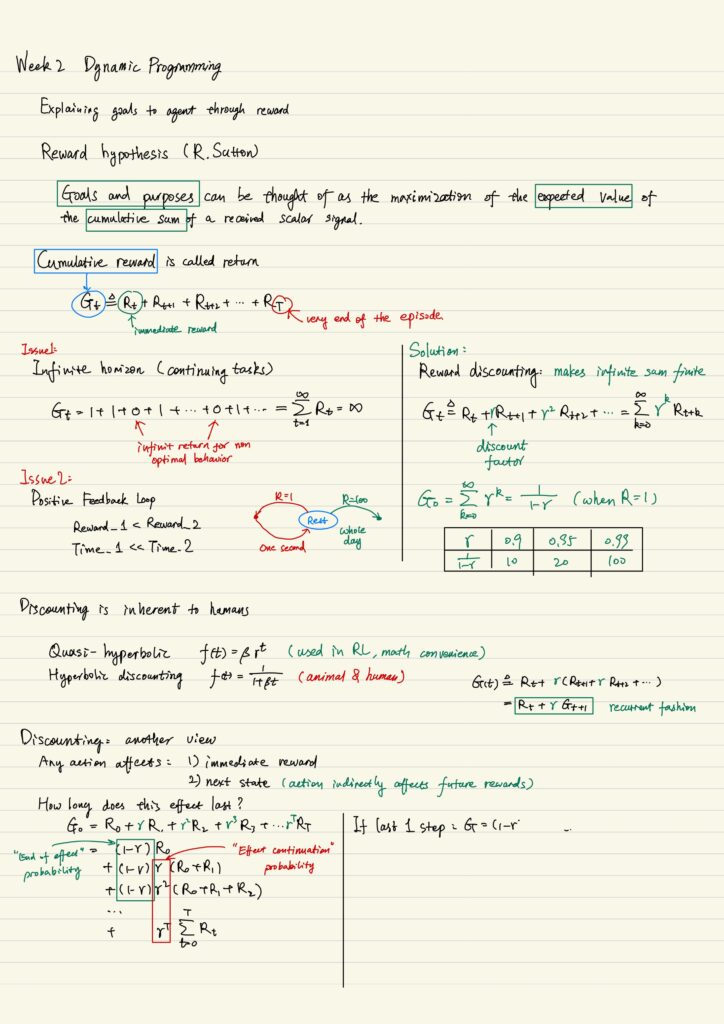 Week 2 Dynamic Programming
Explaining goals to agent through reward
Reward hypothesis (R. Sutton)
Goals and purposes can be thought of as the maximization of the expected value of
the cumulative sum of a received scalar signal.
Cumulative reward is called return
G_t ≜ R_t + R_{t+1} + R_{t+2} + ⋯ + R_T
immediate reward
very end of the episode.
Issue1:
Infinite horizon (continuing tasks)
G_t = 1 + 1 + 0 + 1 + ⋯ + 0 + 1 + ⋯ = ∑_{t=1}^{∞} R_t = ∞
infinit return for non
optimal behavior
Issue 2:
Positive Feedback loop
Reward_1 < Reward_2
Time_1 << Time_2
R=1
Rest
R=100
One second
whole
day
Solution:
Reward discounting: makes infinite sum finite
G_t ≜ R_t + γR_{t+1} + γ² R_{t+2} + ⋯ = ∑_{k=0}^{∞} γ^k R_{t+k}
discount
factor
G_0 = ∑_{k=0}^{∞} γ^k = 1/(1-γ) (when R=1)
γ 0.9 0.95 0.99
1/(1-γ) 10 20 100
Discounting is inherent to humans
Quasi-hyperbolic f(t) = β γ^t (used in RL, math convenience)
Hyperbolic discounting f(t) = 1/(1+βt) (animal & human)
G(t) ≜ R_t + γ(R_{t+1} + γ R_{t+2} + ⋯)
= R_t + γ G_{t+1} recurrent fashion
Discounting: another view
Any action affects: 1) immediate reward
2) next state (action indirectly affects future rewards)
How long does this effect last?
G_0 = R_0 + γ R_1 + γ² R_2 + γ³ R_3 + ⋯ γ^T R_T
= (1-γ) R_0
+ (1-γ) γ (R_0 + R_1)
+ (1-γ) γ² (R_0 + R_1 + R_2)
⋯
+ γ^T ∑_{t=0}^{T} R_t
"End of effect"
probability
"Effect continuation"
probability
If last 1 step: G = (1-γ ⋯